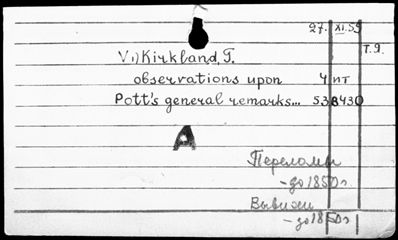 27. XI.59
T.9.
V 1) Kirkland, T.
observations upon 4 пт
Pott's general remarks... 538430
A
Переломы
- до 1850г
Вывихи
- до 1850г